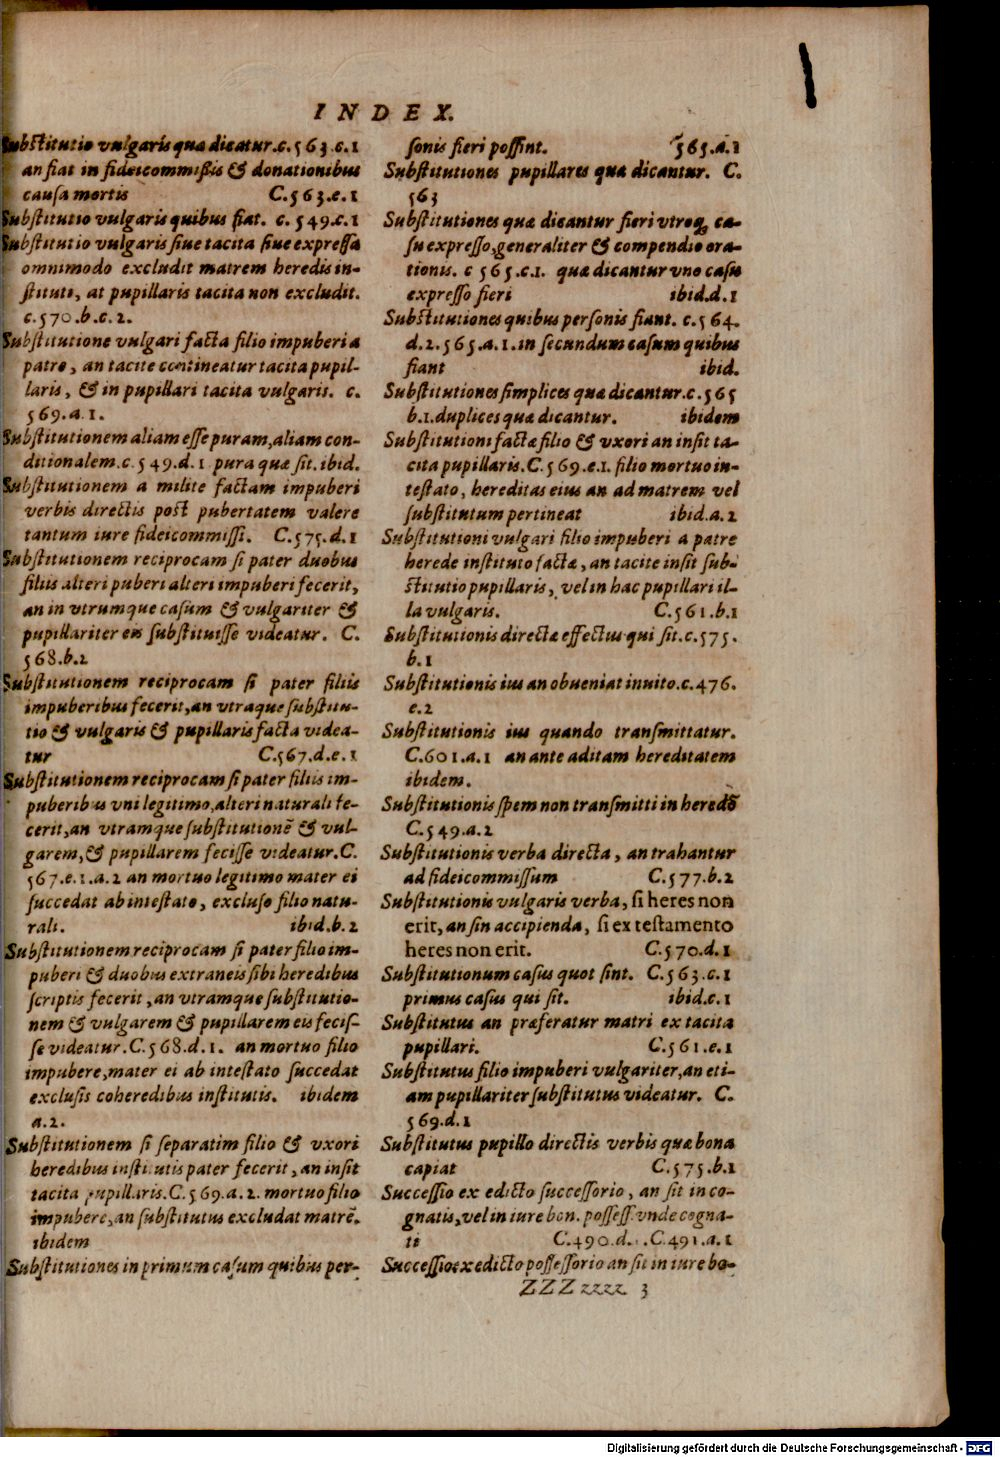 INDEX.
Substitutio vulgaris quæ dicatur. c. 563.c.1
an fiat in fideicommissis & donationibus
causa mortis C. 563.e.1
Substitutio vulgaris quibus fiat. c. 549.c.1
Substitutio vulgaris siue tacita siue expressa
omnimodo excludit matrem heredis in-
stituti, at pupillaris tacita non excludit.
c. 570.b.c.2.
Substitutione vulgari facta filio impuberi a
patre, an tacite contineatur tacita pupil-
laris, & in pupillari tacita vulgaris. c.
569.a.1.
Substitutionem aliam esse puram, aliam con-
ditionalem. c. 549.d.1 pura quæ sit. ibid.
Substitutionem a milite factam impuberi
verbis directis post pubertatem valere
tantum iure fideicommissi. C. 575.d.1
Substitutionem reciprocam si pater duobus
filiis alteri puberi alteri impuberi fecerit,
an in vtrumque casum & vulgariter &
pupillariter eis substituisse videatur. C.
568.b.2
Substitutionem reciprocam si pater filiis
impuberibus fecerit, an vtraque substitu-
tio & vulgaris & pupillaris facta videa-
tur C. 567.d.e.1
Substitutionem reciprocam si pater filiis im-
puberibus vni legitimo, alteri naturali fe-
cerit, an vtramque substitutionē & vul-
garem, & pupillarem fecisse videatur. C.
567.e.1.a.2 an mortuo legitimo mater ei
succedat ab intestato, excluso filio natu-
rali. ibid.b.2
Substitutionem reciprocam si pater filio im-
puberi & duobus extraneis sibi heredibus
scriptis fecerit, an vtramque substitutio-
nem & vulgarem & pupillarem eis fecis-
se videatur. C. 568.d.1. an mortuo filio
impubere, mater ei ab intestato succedat
exclusis coheredibus institutis. ibidem
a.2.
Substitutionem si separatim filio & vxori
heredibus institutis pater fecerit, an insit
tacita pupillaris. C. 569.a.2. mortuo filio
impubere, an substitutus excludat matrē.
ibidem
Substitutiones in primum casum quibus per-
sonis fieri possint. 565.a.1
Substitutiones pupillares quæ dicantur. C.
563
Substitutiones quæ dicantur fieri vtroq; ca-
su expresso, generaliter & compendio ora-
tionis. c 565.c.1. quæ dicantur vno casu
expresso fieri ibid.d.1
Substitutiones quibus personis fiant. c. 564.
d.2.565.a.1. in secundum casum quibus
fiant ibid.
Substitutiones simplices quæ dicantur. c. 565
b.1. duplices quæ dicantur. ibidem
Substitutioni factæ filio & vxori an insit ta-
cita pupillaris. C. 569.e.1. filio mortuo in-
testato, hereditas eius an ad matrem vel
substitutum pertineat ibid.a.2
Substitutioni vulgari filio impuberi a patre
herede instituto factæ, an tacite insit sub-
stitutio pupillaris, vel in hac pupillari il-
la vulgaris. C. 561.b.1
Substitutionis directæ effectus qui sit. c. 575.
b.1
Substitutionis ius an obueniat inuito. c. 476.
e.2
Substitutionis ius quando transmittatur.
C. 601.a.1 an ante aditam hereditatem
ibidem.
Substitutionis spem non transmitti in heredē
C. 549.a.2
Substitutionis verba directa, an trahantur
ad fideicommissum C. 577.b.2
Substitutionis vulgaris verba, si heres non
erit, an sin accipienda, si ex testamento
heres non erit. C. 570.d.1
Substitutionum casus quot sint. C. 563.c.1
primus casus qui sit. ibid.c.1
Substitutus an præferatur matri ex tacita
pupillari. C. 561.e.1
Substitutus filio impuberi vulgariter, an eti-
am pupillariter substitutus videatur. C.
569.d.1
Substitutus pupillo directis verbis quæ bona
capiat C. 575.b.1
Successio ex edicto successorio, an sit in co-
gnatis, vel in iure bon. possess. vnde cogna-
ti C. 490.d. C. 491.a.1
Successio ex edicto possessorio an sit in iure bo-
ZZZzzzz 3
Digitalisierung gefördert durch die Deutsche Forschungsgemeinschaft - DFG